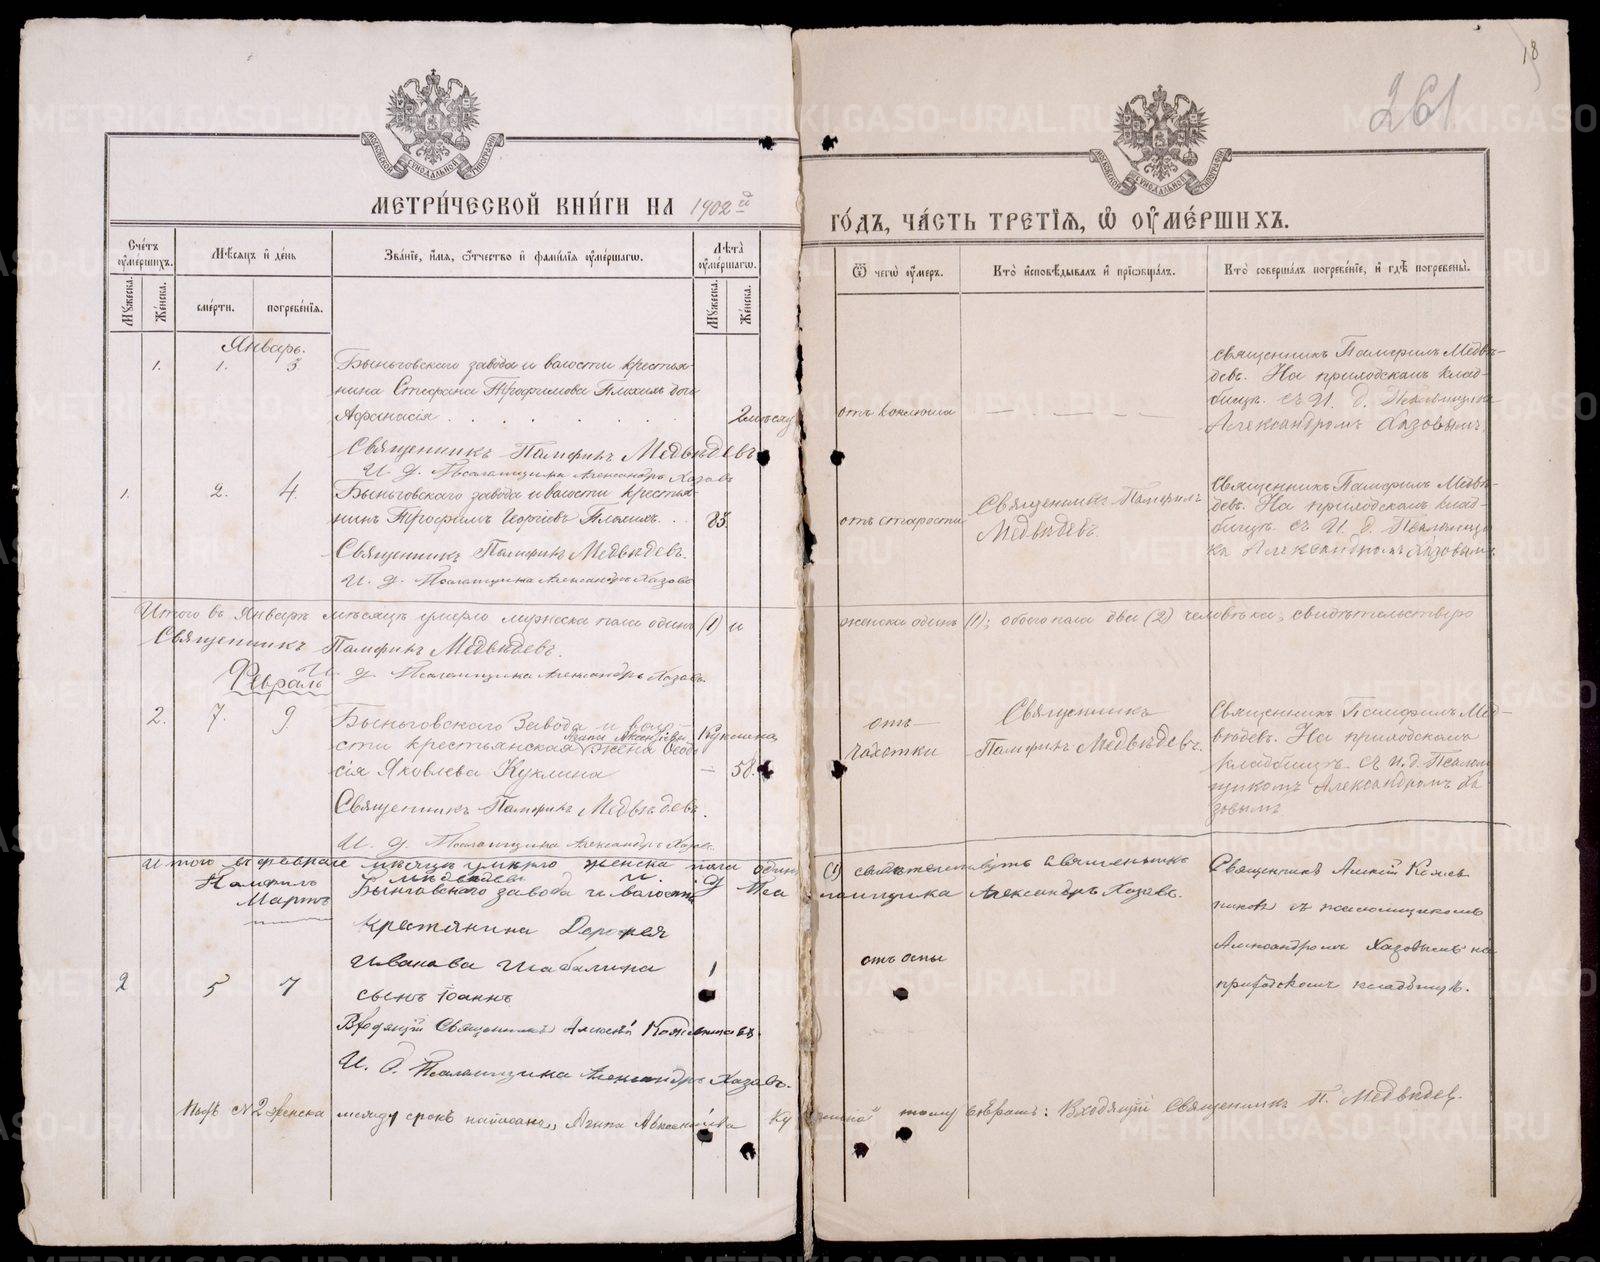 18
261
МЕТРИ́ЧЕСКОЙ КНИ́ГИ НА 1902 й
ГО́ДЪ, ЧА́СТЬ ТРЕТІЯ, Ѡ ОУМЕ́РШИХЪ.
Сче́тъ оумéршихъ.
Мѣ́сяцъ и де́нь
Зва́ніе, и́мя, ѻ҆́тчество и фами́лія оуме́ршагѡ.
Лѣ́та оуме́ршагѡ.
Ѿ чегѡ̀ оу́меръ.
Кто̀ исповѣ́дывалъ и пріѡбща́лъ.
Кто̀ соверша́лъ погребе́ніе, и гдѣ̀ погребены̀.
Му́жеска.
Же́нска.
сме́рти.
погребе́нія.
Му́жеска.
Же́нска.
Январь.
1. 1. 3
Быньговскаго завода и волости крестья-
нина Стефана Трофимова Плохихъ дочь
Афанасія
2 месяц
отъ коклюша
Священникъ Памфилъ Медвѣ-
девъ. На приходскомъ клад-
бищѣ. съ И. д. Псаломщика
Александромъ Хазовымъ
Священникъ Памфилъ Медвѣдевъ
И. д. Псаломщика Александръ Хазовъ
1. 2. 4.
Быньговскаго завода и волости крестья-
нинъ Трофимъ Георгіевъ Плохихъ.
83.
отъ старости
Священникъ Памфилъ
Медвѣдевъ.
Священникъ Памфилъ Медвѣ-
девъ. На приходскомъ клад-
бищѣ съ И. д. Псаломщи
ка Александромъ Хазовымъ
Священникъ Памфилъ Медвѣдевъ.
И. д. Псаломщика Александръ Хазовъ
Итого въ Январѣ мѣсяцѣ умерло мужеска пола одинъ (1) и
женска одинъ (1); обоего пола два (2) человѣка, свидѣтельствую
Священникъ Памфилъ Медвѣдевъ.
И. д. Псаломщика Александръ Хазовъ.
Февраль
2. 7. 9
Быньговскаго Завода и воло-
Агипа Авксентіева Куклина
сти крестьянская жена Ѳеодо
сія Яковлева Куклина
— 58.
отъ
чахотки
Священникъ
Памфилъ Медвѣдевъ.
Священникъ Памфилъ Мед-
вѣдевъ. На приходскомъ
кладбищѣ. съ и. д. Псалом
щикомъ Александромъ Ха
зовымъ
Священникъ Памфилъ Медвѣдевъ.
И. д. Псаломщика Александръ Хазовъ.
Итого въ феврале мѣсяцѣ умерло женска пола одинъ
(1) свидетельствуетъ священникъ
Памфилъ Медведевъ И. д. Пса
ломщика Александръ Хазовъ.
Мартъ
2 5 7
Быньговскаго завода и волости
крестьянина Дорофея
Иванова Шабалина
сынъ Іоаннъ
1
отъ оспы
Священникъ Алексій Кожев
никовъ съ псаломщикомъ
Александромъ Хазовымъ на
приходскомъ кладбищѣ.
Входящій Священникъ Алексѣй Кожевниковъ.
И. д. Псаломщика Александръ Хазовъ.
№2 женска между срокъ написано „Агипа Авксентіева Куклина" тому вѣрить: Входящій Священникъ П. Медвѣдев.
METRIKI.GASO-URAL.RU